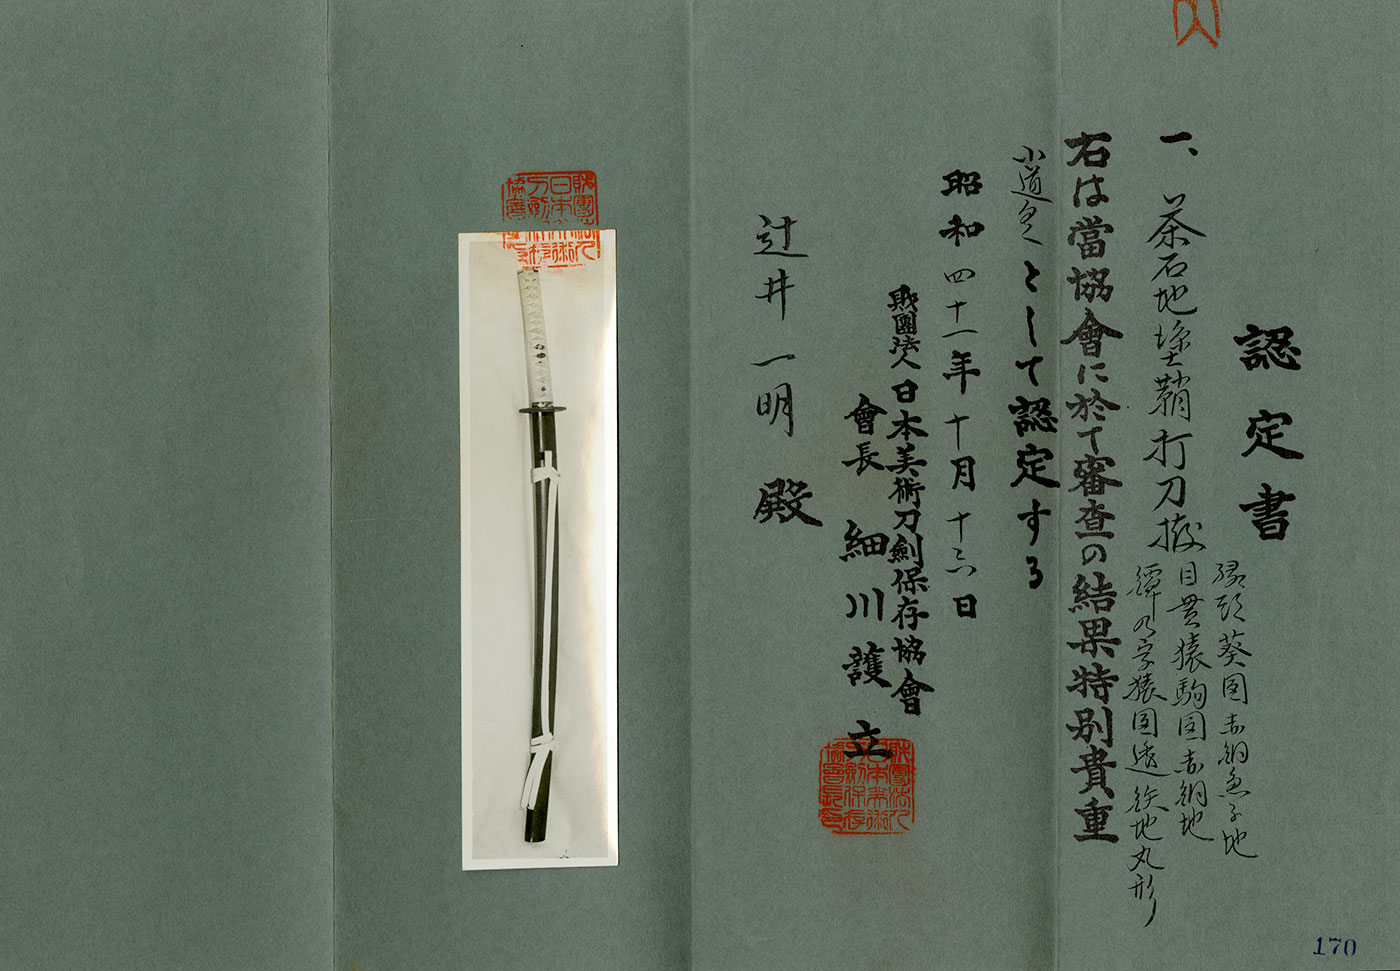 認定書
一、茶石地塗鞘打刀拵
縁頭葵図赤銅魚子地
目貫猿駒図赤銅地
鐔の字猿図透鉄地丸形
右は當協會に於て審査の結果特別貴重
小道具として認定する
昭和四十一年十月十六日
財團法人日本美術刀劍保存協會
會長 細川護立
辻井一明 殿
170